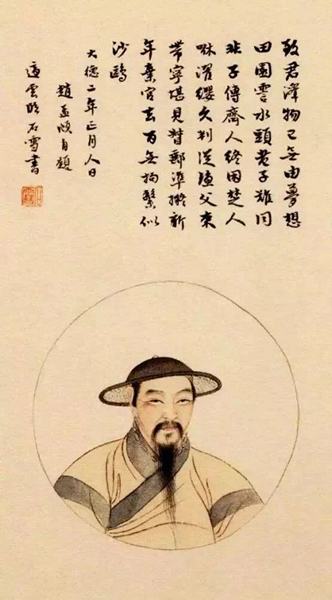 致君澤物已無由夢想
田園雲水頭老子難同
非子傳齊人終困楚人
咻濯纓久判從漁父束
帶寧堪見督郵準擬新
年棄官去百無拘繫似
沙鷗
大德二年正月人日
趙孟頫自題
雲臨石雪書